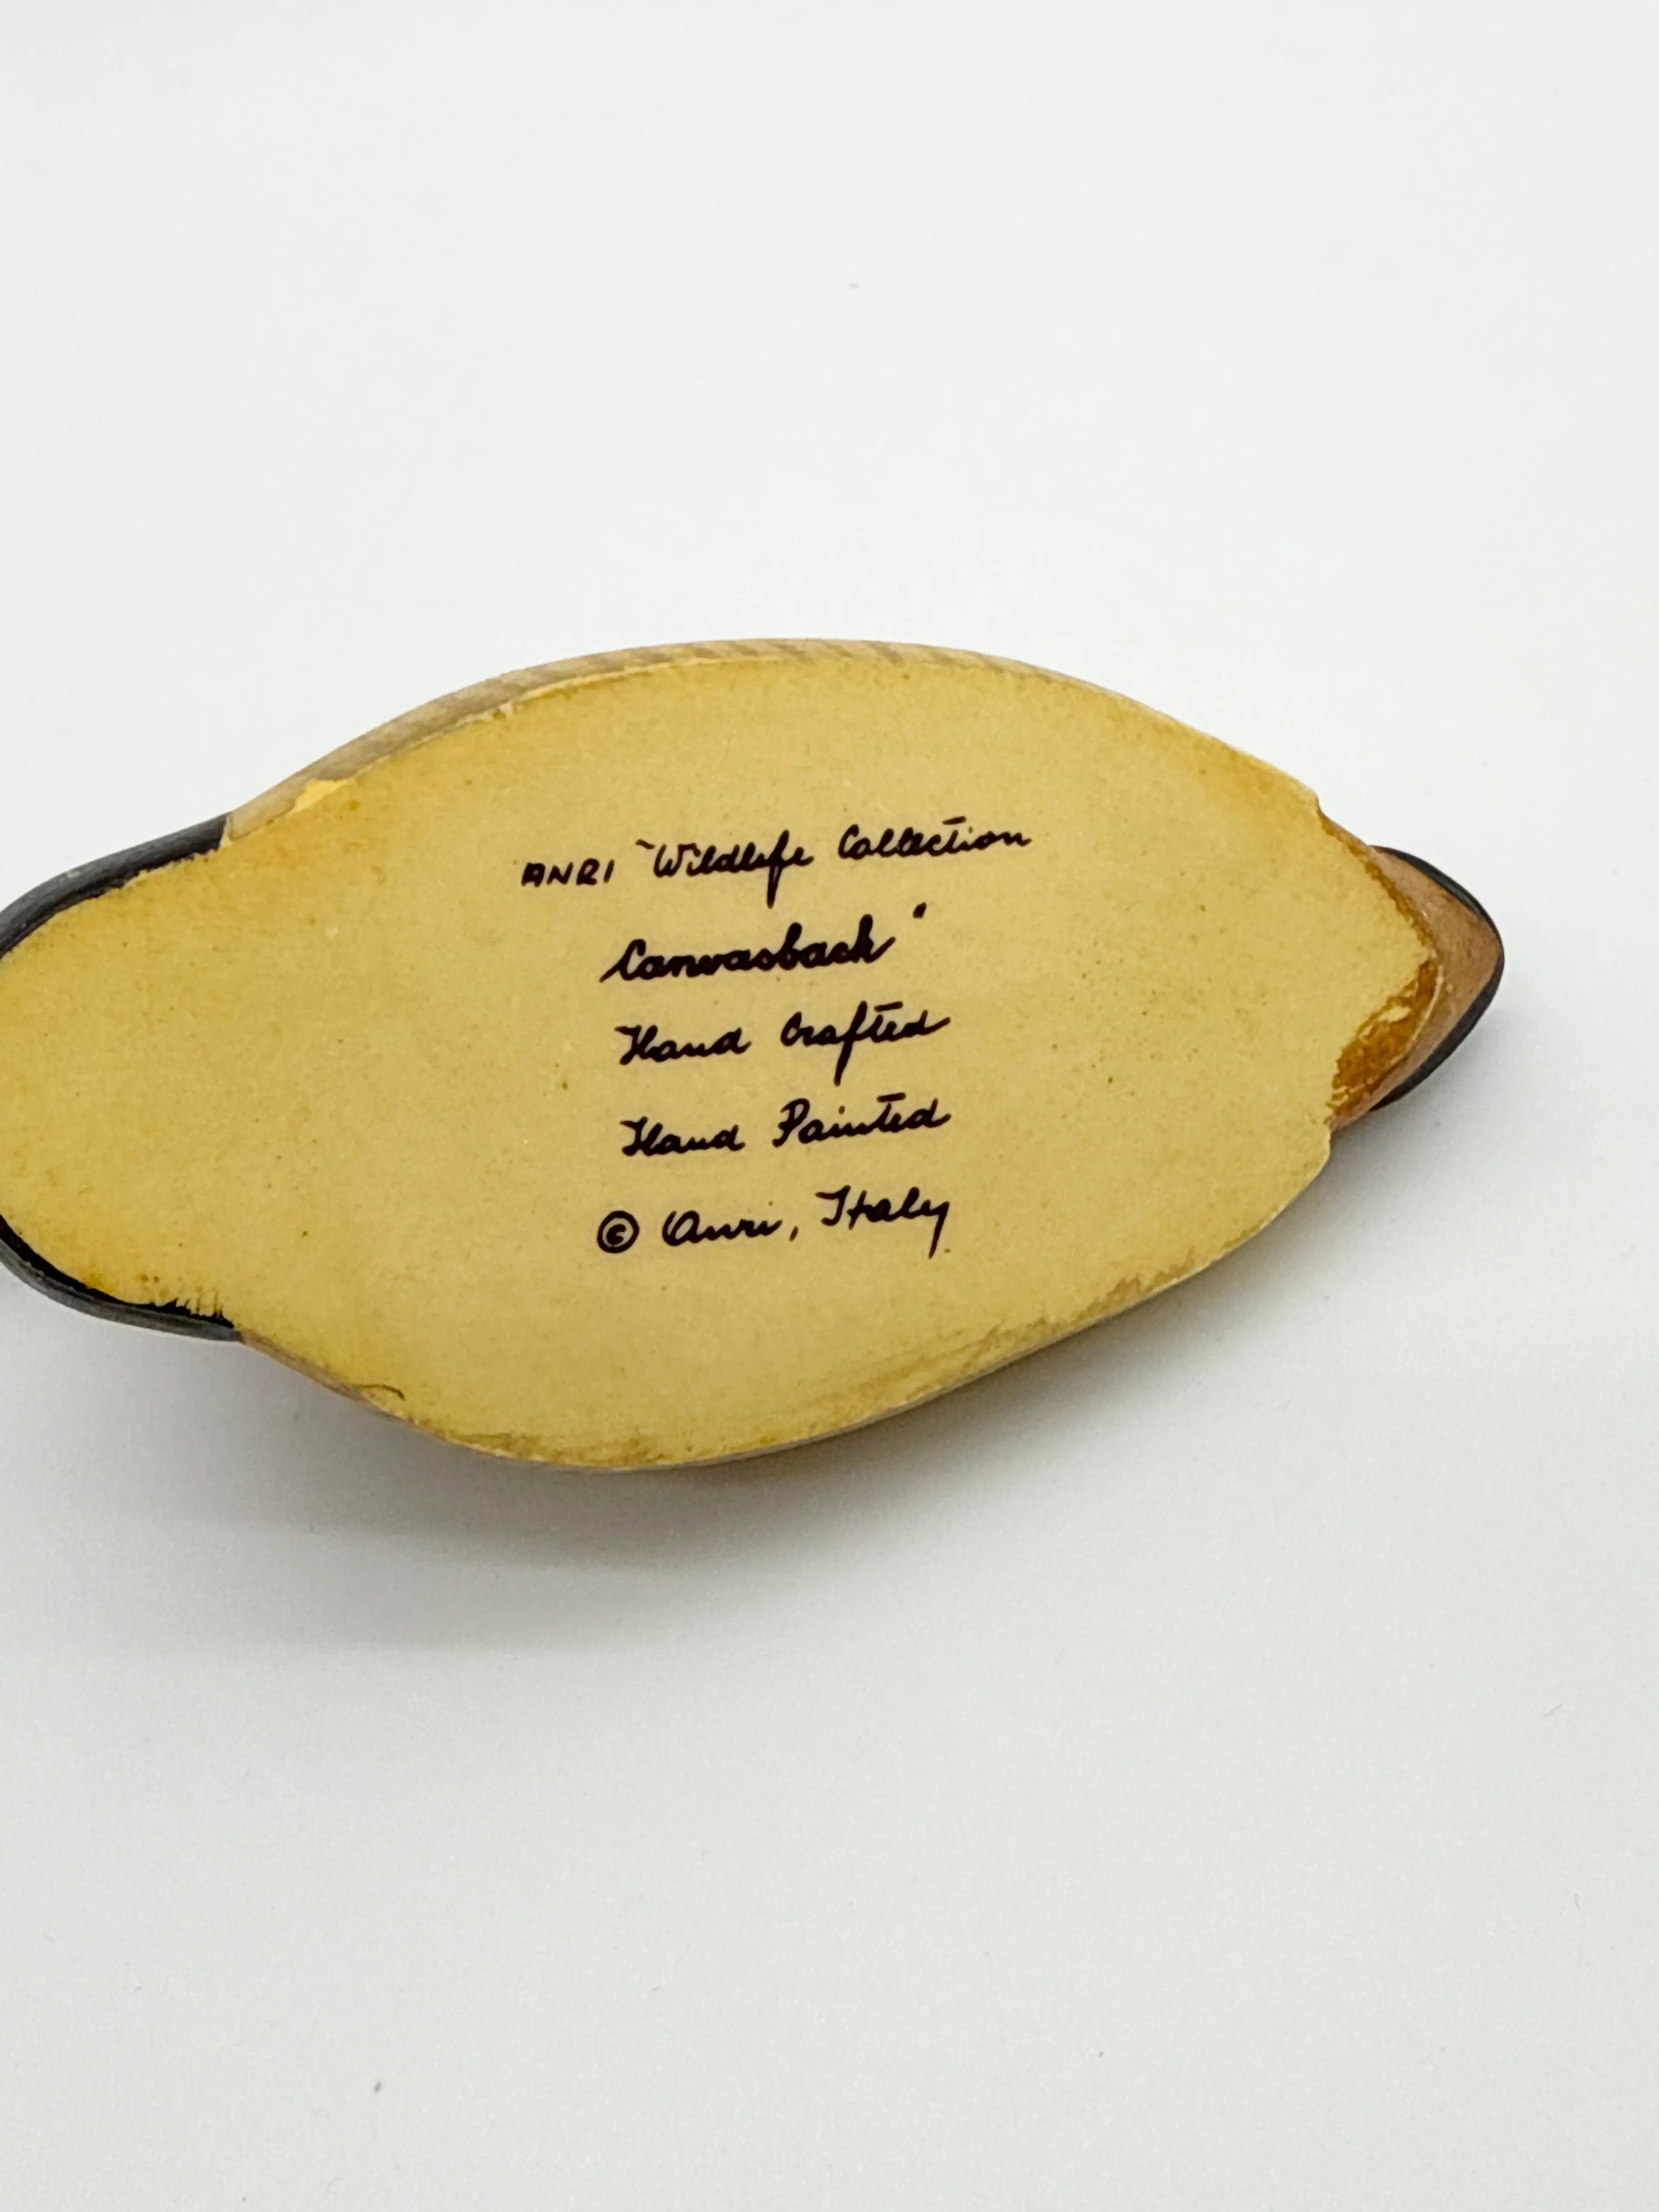 ANRI "Wildlife Collection
Canvasback"
Hand Crafted
Hand Painted
© Anri, Italy